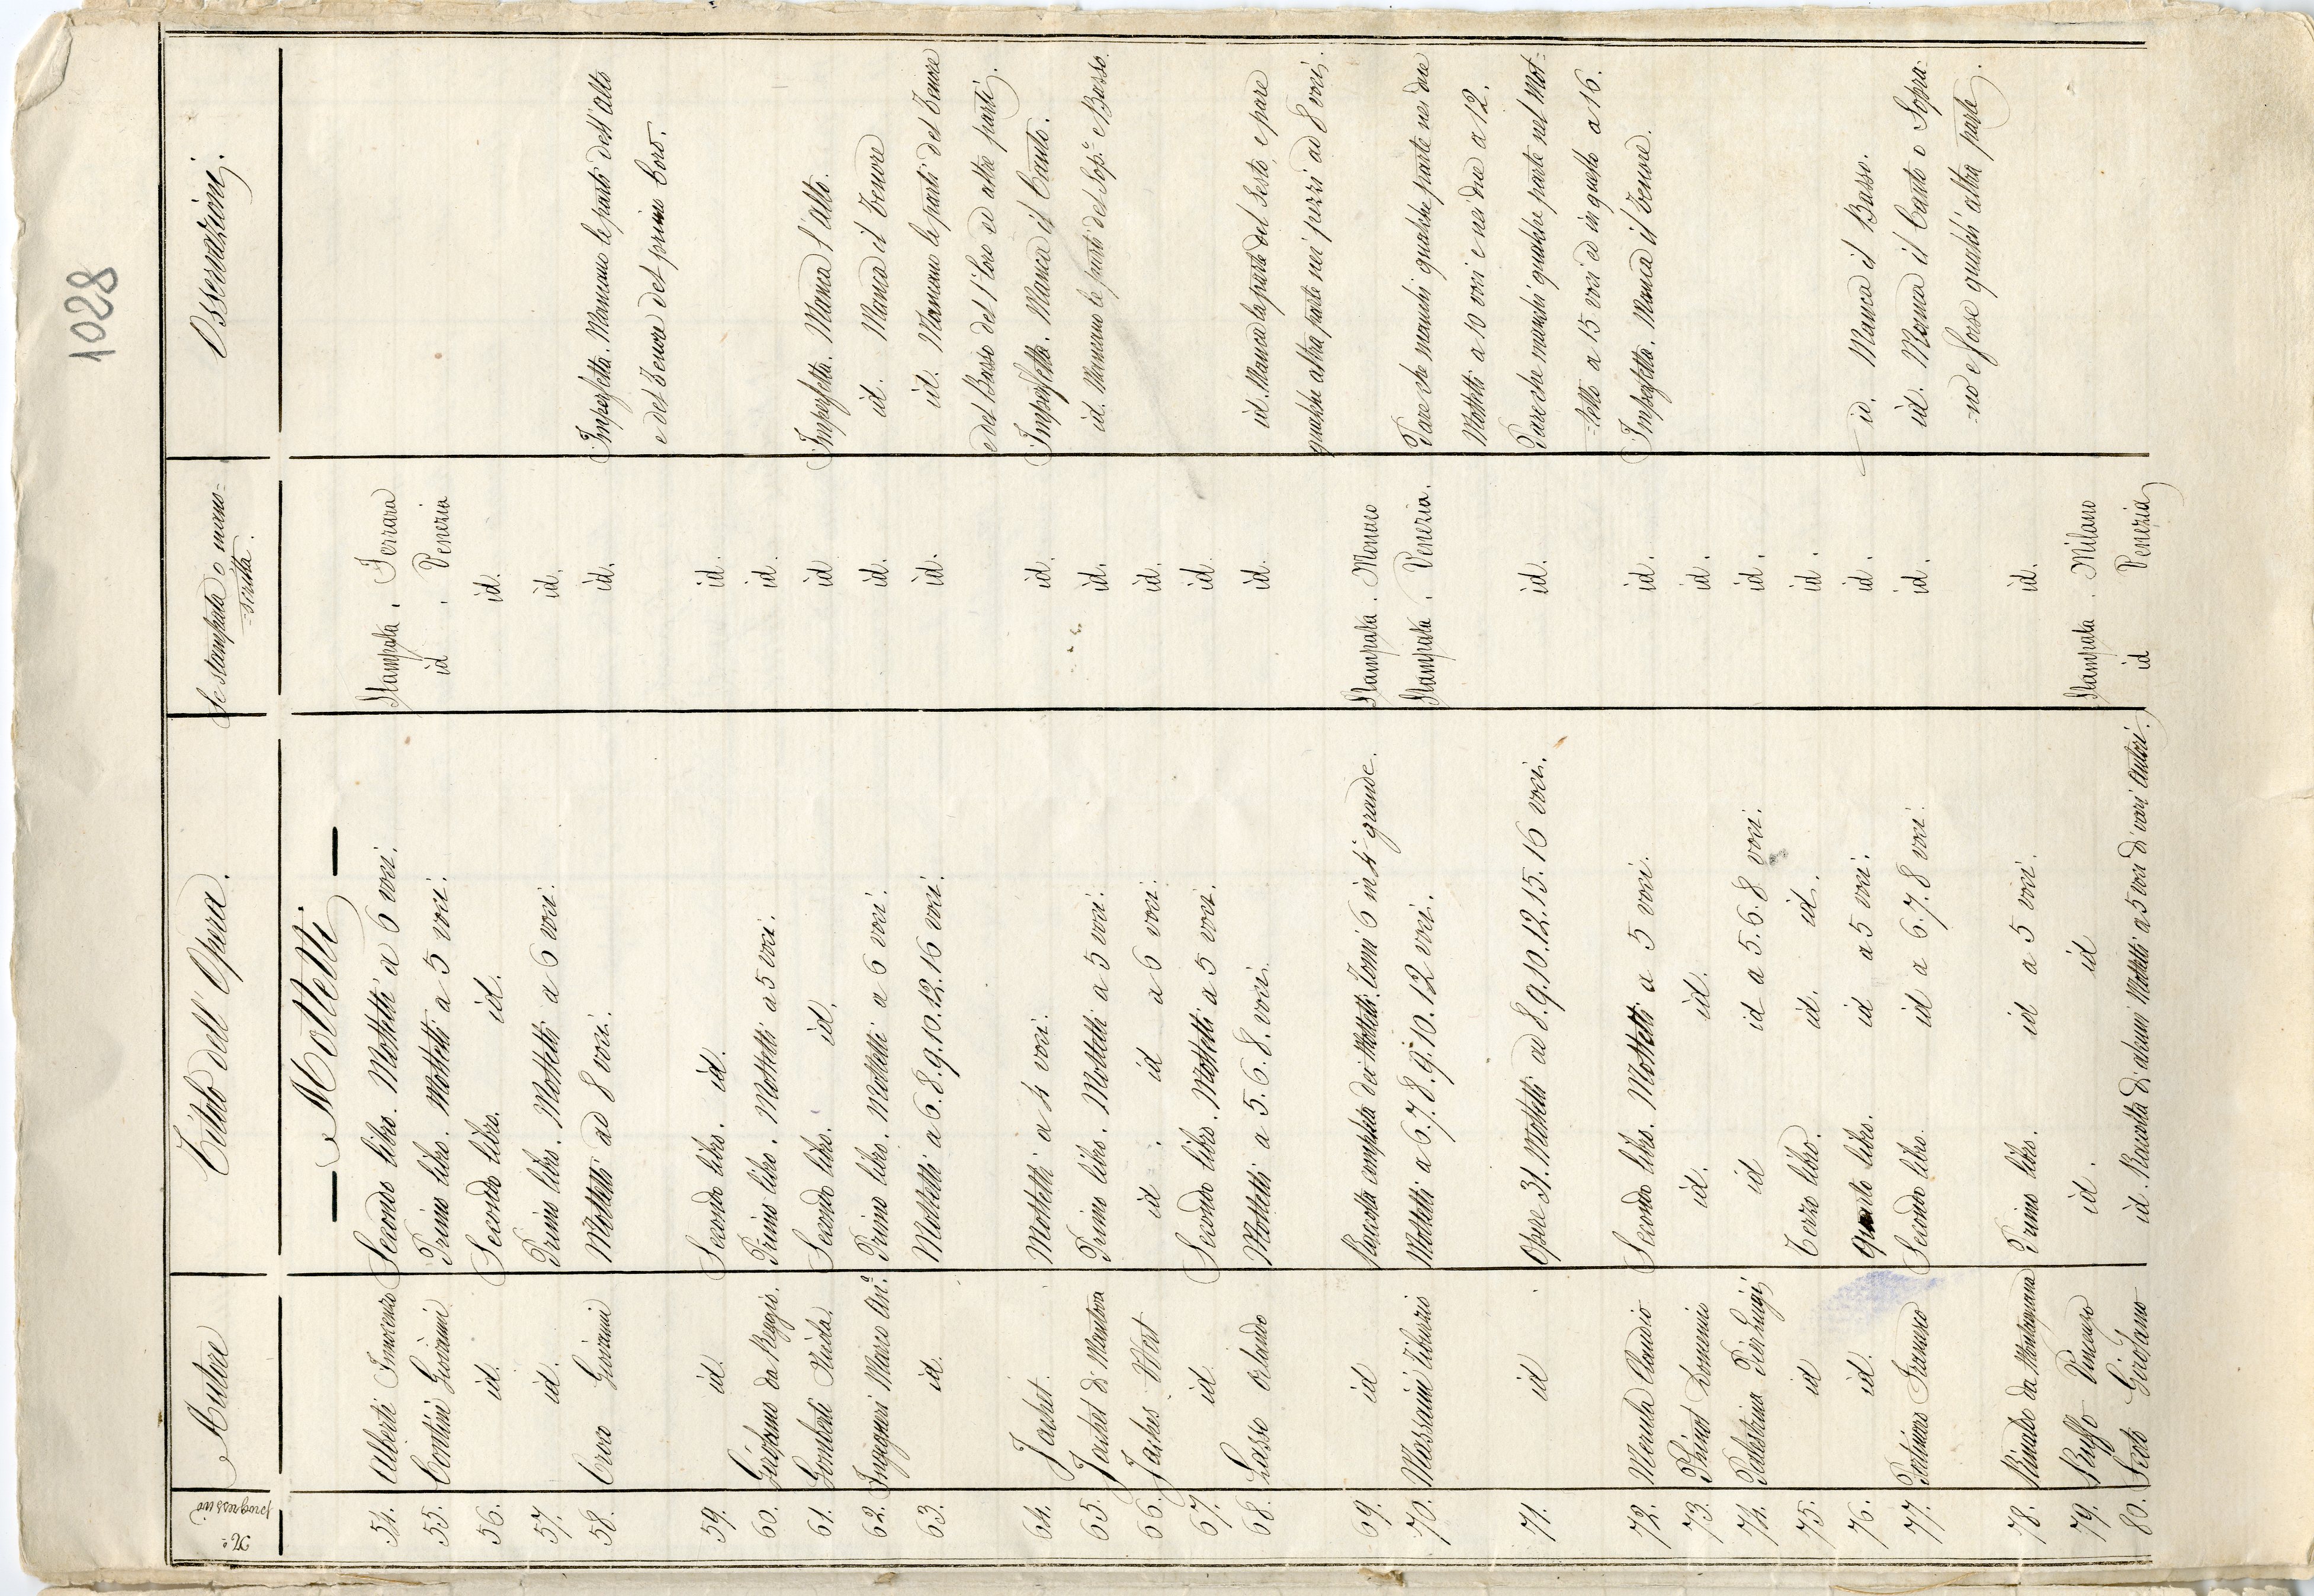 1028
N.° progressivo Autore Titolo dell' Opera. Se stampata o mano=
=scritta. Osservazioni.
— Mottetti. —
54. Alberti Innocenzo Secondo libro. Mottetti a 6 voci. Stampata. Ferrara
55. Contini Giovanni Primo libro. Mottetti a 5 voci. id. Venezia
56. id. Secondo libro. id. id.
57. id. Primo libro. Mottetti a 6 voci. id.
58. Croce Giovanni Mottetti ad 8 voci. id. Imperfetta. Mancano le parti dell'alto
e del Tenore del primo Coro.
59. id. Secondo libro. id. id.
60. Girolamo da Reggio. Primo libro. Mottetti a 5 voci. id.
61. Gomberti Nicola. Secondo libro. id. id. Imperfetta. Manca l'alto.
62. Ingegneri Marco An.° Primo libro. Mottetti a 6 voci. id. id. Manca il Tenore
63. id. Mottetti a 6. 8. 9. 10. 12. 16 voci. id. id. Mancano le parti del Tenore
e del Basso del 1° Coro ed altre parti.
64. Jachet. Mottetti a 4 voci. id. Imperfetta. Manca il Canto.
65. Jachet di Mantova Primo libro. Mottetti a 5 voci. id. id. Mancano le parti del Sop.° e Basso.
66. Jaches Wert id. id a 6 voci. id.
67. id. Secondo libro. Mottetti a 5 voci. id.
68. Lasso Orlando Mottetti a 5. 6. 8. voci. id. id. Manca la parte del Sesto, e pare
qualche altra parte nei pezzi ad 8 voci.
69. id Raccolta completa dei Mottetti. Tomi 6 in 4° grande. Stampata. Monaco
70. Massaini Tiburzio Mottetti a 6. 7. 8. 9. 10. 12 voci. Stampata. Venezia. Pare che manchi qualche parte nei due
Mottetti a 10 voci e nei due a 12.
71. id Opere 31. Mottetti ad 8. 9. 10. 12. 15. 16 voci. id. Pare che manchi qualche parte nel Mot=
=tetto a 15 voci ed in quello a 16.
72. Merula Claudio Secondo libro. Mottetti a 5 voci. id. Imperfetta. Manca il Tenore.
73. Phinot Domenico id. id. id.
74. Palestrina Pier Luigi id id a 5. 6. 8 voci. id.
75. id Terzo libro. id. id. id.
76. id. Quarto libro. id a 5 voci. id. id. Manca il Basso.
77. Portinaro Francesco Secondo libro. id a 6. 7. 8 voci. id. id. Manca il Canto o Sopra=
=no e forse qualch'altra parte.
78. Rinaldo da Montagnana Primo libro. id a 5 voci. id.
79. Ruffo Vincenzo id. id Stampata. Milano
80. Scoto Girolamo id. Raccolta di alcuni Mottetti a 5 voci di varii Autori. id Venezia